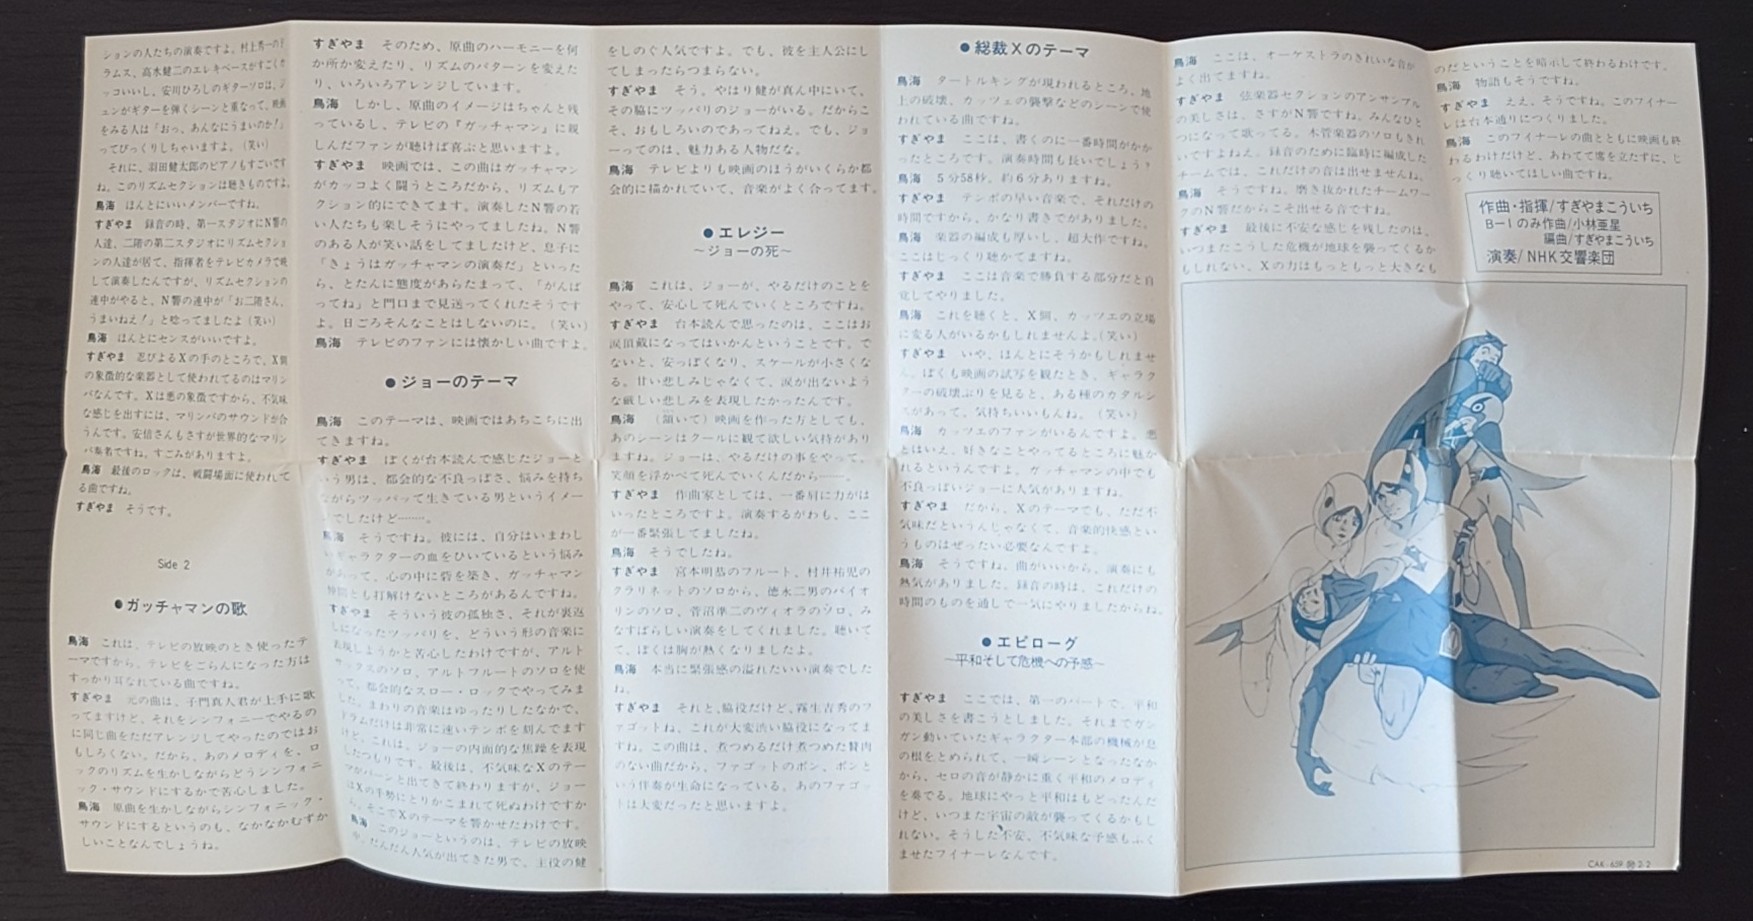 ションの人たちの演奏ですよ。村上秀一のド
ラムス、高水健二のエレキベースがすごくカ
ッコいいし、安川ひろしのギターソロは、ジ
ュンがギターを弾くシーンと重なって、映画
をみる人は「おっ、あんなにうまいのか!」
ってびっくりしちゃいますよ。(笑い)
それに、羽田健太郎のピアノもすごいです
ね。このリズムセクションは聴きものですよ。
鳥海 ほんとにいいメンバーですね。
すぎやま 録音の時、第一スタジオにN響の
人達、二階の第二スタジオにリズムセクショ
ンの人達が居て、指揮者をテレビカメラで映
して演奏したんですが、リズムセクションの
連中がやると、N響の連中が「お二階さん、
うまいねえ!」と唸ってましたよ(笑い)
鳥海 ほんとにセンスがいいですよ。
すぎやま 忍びよるXの手のところで、X側
の象徴的な楽器として使われてるのはマリン
バなんです。Xは悪の象徴ですから、不気味
な感じを出すには、マリンバのサウンドが合
うんです。安倍さんもさすが世界的なマリン
バ奏者ですね。すごみがありますよ。
鳥海 最後のロックは、戦闘場面に使われて
る曲ですね。
すぎやま そうです。
Side 2
●ガッチャマンの歌
鳥海 これは、テレビの放映のとき使ったテ
ーマですから、テレビをごらんになった方は
すっかり耳なれている曲ですね。
すぎやま 元の曲は、子門真人君が上手に歌
ってますけど、それをシンフォニーでやるの
に同じ曲をただアレンジしてやったのではお
もしろくない。だから、あのメロディを、ロ
ックのリズムを生かしながらどうシンフォニ
ック・サウンドにするかで苦心しました。
鳥海 原曲を生かしながらシンフォニック・
サウンドにするというのも、なかなかむずか
しいことなんでしょうね。
すぎやま そのため、原曲のハーモニーを何
か所か変えたり、リズムのパターンを変えた
り、いろいろアレンジしています。
鳥海 しかし、原曲のイメージはちゃんと残
っているし、テレビの『ガッチャマン』に親
しんだファンが聴けば喜ぶと思いますよ。
すぎやま 映画では、この曲はガッチャマン
がカッコよく闘うところだから、リズムもア
クション的にできてます。演奏したN響の若
い人たちも楽しそうにやってましたね。N響
のある人が笑い話をしてましたけど、息子に
「きょうはガッチャマンの演奏だ」といった
ら、とたんに態度があらたまって、「がんば
ってね」と門口まで見送ってくれたそうです
よ。日ごろそんなことはしないのに。(笑い)
鳥海 テレビのファンには懐かしい曲ですよ。
●ジョーのテーマ
鳥海 このテーマは、映画ではあちこちに出
てきますね。
すぎやま ぼくが台本読んで感じたジョーと
いう男は、都会的な不良っぽさ、悩みを持ち
ながらツッパって生きている男というイメー
ジでしたけど……。
鳥海 そうですね。彼には、自分はいまわし
いギャラクターの血をひいているという悩み
があって、心の中に砦を築き、ガッチャマン
仲間とも打解けないところがあるんですね。
すぎやま そういう彼の孤独さ、それが裏返
しになったツッパリを、どういう形の音楽に
表現しようかと苦心したわけですが、アルト
サックスのソロ、アルトフルートのソロを使
って、都会的なスロー・ロックでやってみま
した。まわりの音楽はゆったりしたなかで、
ドラムだけは非常に速いテンポを刻んでます
けど、これは、ジョーの内面的な焦躁を表現
したつもりです。最後は、不気味なXのテー
マがバーンと出てきて終わりますが、ジョー
はXの手勢にとりかこまれて死ぬわけですか
ら、そこでXのテーマを響かせたわけです。
鳥海 このジョーというのは、テレビの放映
中、だんだん人気が出てきた男で、主役の健
をしのぐ人気ですよ。でも、彼を主人公にし
てしまったらつまらない。
すぎやま そう、やはり健が真ん中にいて、
その脇にツッパリのジョーがいる。だからこ
そ、おもしろいのであってねえ。でも、ジョ
ーってのは、魅力ある人物だな。
鳥海 テレビよりも映画のほうがいくらか都
会的に描かれていて、音楽がよく合ってます。
●エレジー
～ジョーの死～
鳥海 これは、ジョーが、やるだけのことを
やって、安心して死んでいくところですね。
すぎやま 台本読んで思ったのは、ここはお
涙頂戴になってはいかんということです。で
ないと、安っぽくなり、スケールが小さくな
る。甘い悲しみじゃなくて、涙が出ないよう
な厳しい悲しみを表現したかったんです。
鳥海 (頷いて)映画を作った方としても、
あのシーンはクールに観て欲しい気持があり
ますね。ジョーは、やるだけの事をやって、
笑顔を浮かべて死んでいくんだから――。
すぎやま 作曲家としては、一番肩に力がは
いったところですよ。演奏するがわも、ここ
が一番緊張してましたね。
鳥海 そうでしたね。
すぎやま 宮本明恭のフルート、村井祐児の
クラリネットのソロから、徳永二男のバイオ
リンのソロ、菅沼準二のヴィオラのソロ、み
なすばらしい演奏をしてくれました。聴いて
て、ぼくは胸が熱くなりましたよ。
鳥海 本当に緊張感の溢れたいい演奏でした
ね。
すぎやま それと、脇役だけど、霧生吉秀のフ
ァゴットね、これが大変渋い脇役になってま
すね。この曲は、煮つめるだけ煮つめた贅肉
のない曲だから、ファゴットのボン、ボンと
いう伴奏が生命になっている。あのファゴッ
トは大変だったと思いますよ。
●総裁Xのテーマ
鳥海 タートルキングが現われるところ、地
上の破壊、カッツェの襲撃などのシーンで使
われている曲ですね。
すぎやま ここは、書くのに一番時間がかか
ったところです。演奏時間も長いでしょう?
鳥海 5分58秒。約6分ありますね。
すぎやま テンポの早い音楽で、それだけの
時間ですから、かなり書きでがありました。
鳥海 楽器の編成も厚いし、超大作ですね。
ここはじっくり聴かてますね。
すぎやま ここは音楽で勝負する部分だと自
覚してやりました。
鳥海 これを聴くと、X側、カッツエの立場
に変る人がいるかもしれませんよ。(笑い)
すぎやま いや、ほんとにそうかもしれませ
ん。ぼくも映画の試写を観たとき、ギャラク
ターの破壊ぶりを見ると、ある種のカタルシ
スがあって、気持ちいいもんね。(笑い)
鳥海 カッツエのファンがいるんですよ。悪
とはいえ、好きなことやってるところに魅か
れるというんですよ。ガッチャマンの中でも
不良っぽいジョーに人気がありますね。
すぎやま だから、Xのテーマでも、ただ不
気味だというんじゃなくて、音楽的快感とい
うものはぜったい必要なんですよ。
鳥海 そうですね、曲がいいから、演奏にも
熱気がありました。録音の時は、これだけの
時間のものを通しで一気にやりましたからね。
●エピローグ
～平和そして危機への予感～
すぎやま ここでは、第一のパートで、平和
の美しさを書こうとしました。それまでガン
ガン動いていたギャラクター本部の機械が息
の根をとめられて、一瞬シーンとなったなか
から、セロの音が静かに重く平和のメロディ
を奏でる。地球にやっと平和はもどったんだ
けど、いつまた宇宙の敵が襲ってくるかもし
れない。そうした不安、不気味な予感もふく
ませたフイナーレなんです。
鳥海 ここは、オーケストラのきれいな音が
よく出てますね。
すぎやま 弦楽器セクションのアンサンブル
の美しさは、さすがN響ですね。みんなひと
つになって歌ってる。木管楽器のソロもきれ
いですよねえ。録音のために臨時に編成した
チームでは、これだけの音は出せませんね。
鳥海 そうですね。磨き抜かれたチームワー
クのN響だからこそ出せる音ですね。
すぎやま 最後に不安な感じを残したのは、
いつまたこうした危機が地球を襲ってくるか
もしれない、Xの力はもっともっと大きなも
のだということを暗示して終わるわけです。
鳥海 物語もそうですね。
すぎやま ええ、そうですね。このフイナー
レは台本通りにつくりました。
鳥海 このフイナーレの曲とともに映画も終
わるわけだけど、あわてて席を立たずに、じ
っくり聴いてほしい曲ですね。
作曲・指揮/すぎやまこういち
B-1のみ作曲/小林亜星
編曲/すぎやまこういち
演奏/NHK交響楽団
CAK 659 2-2